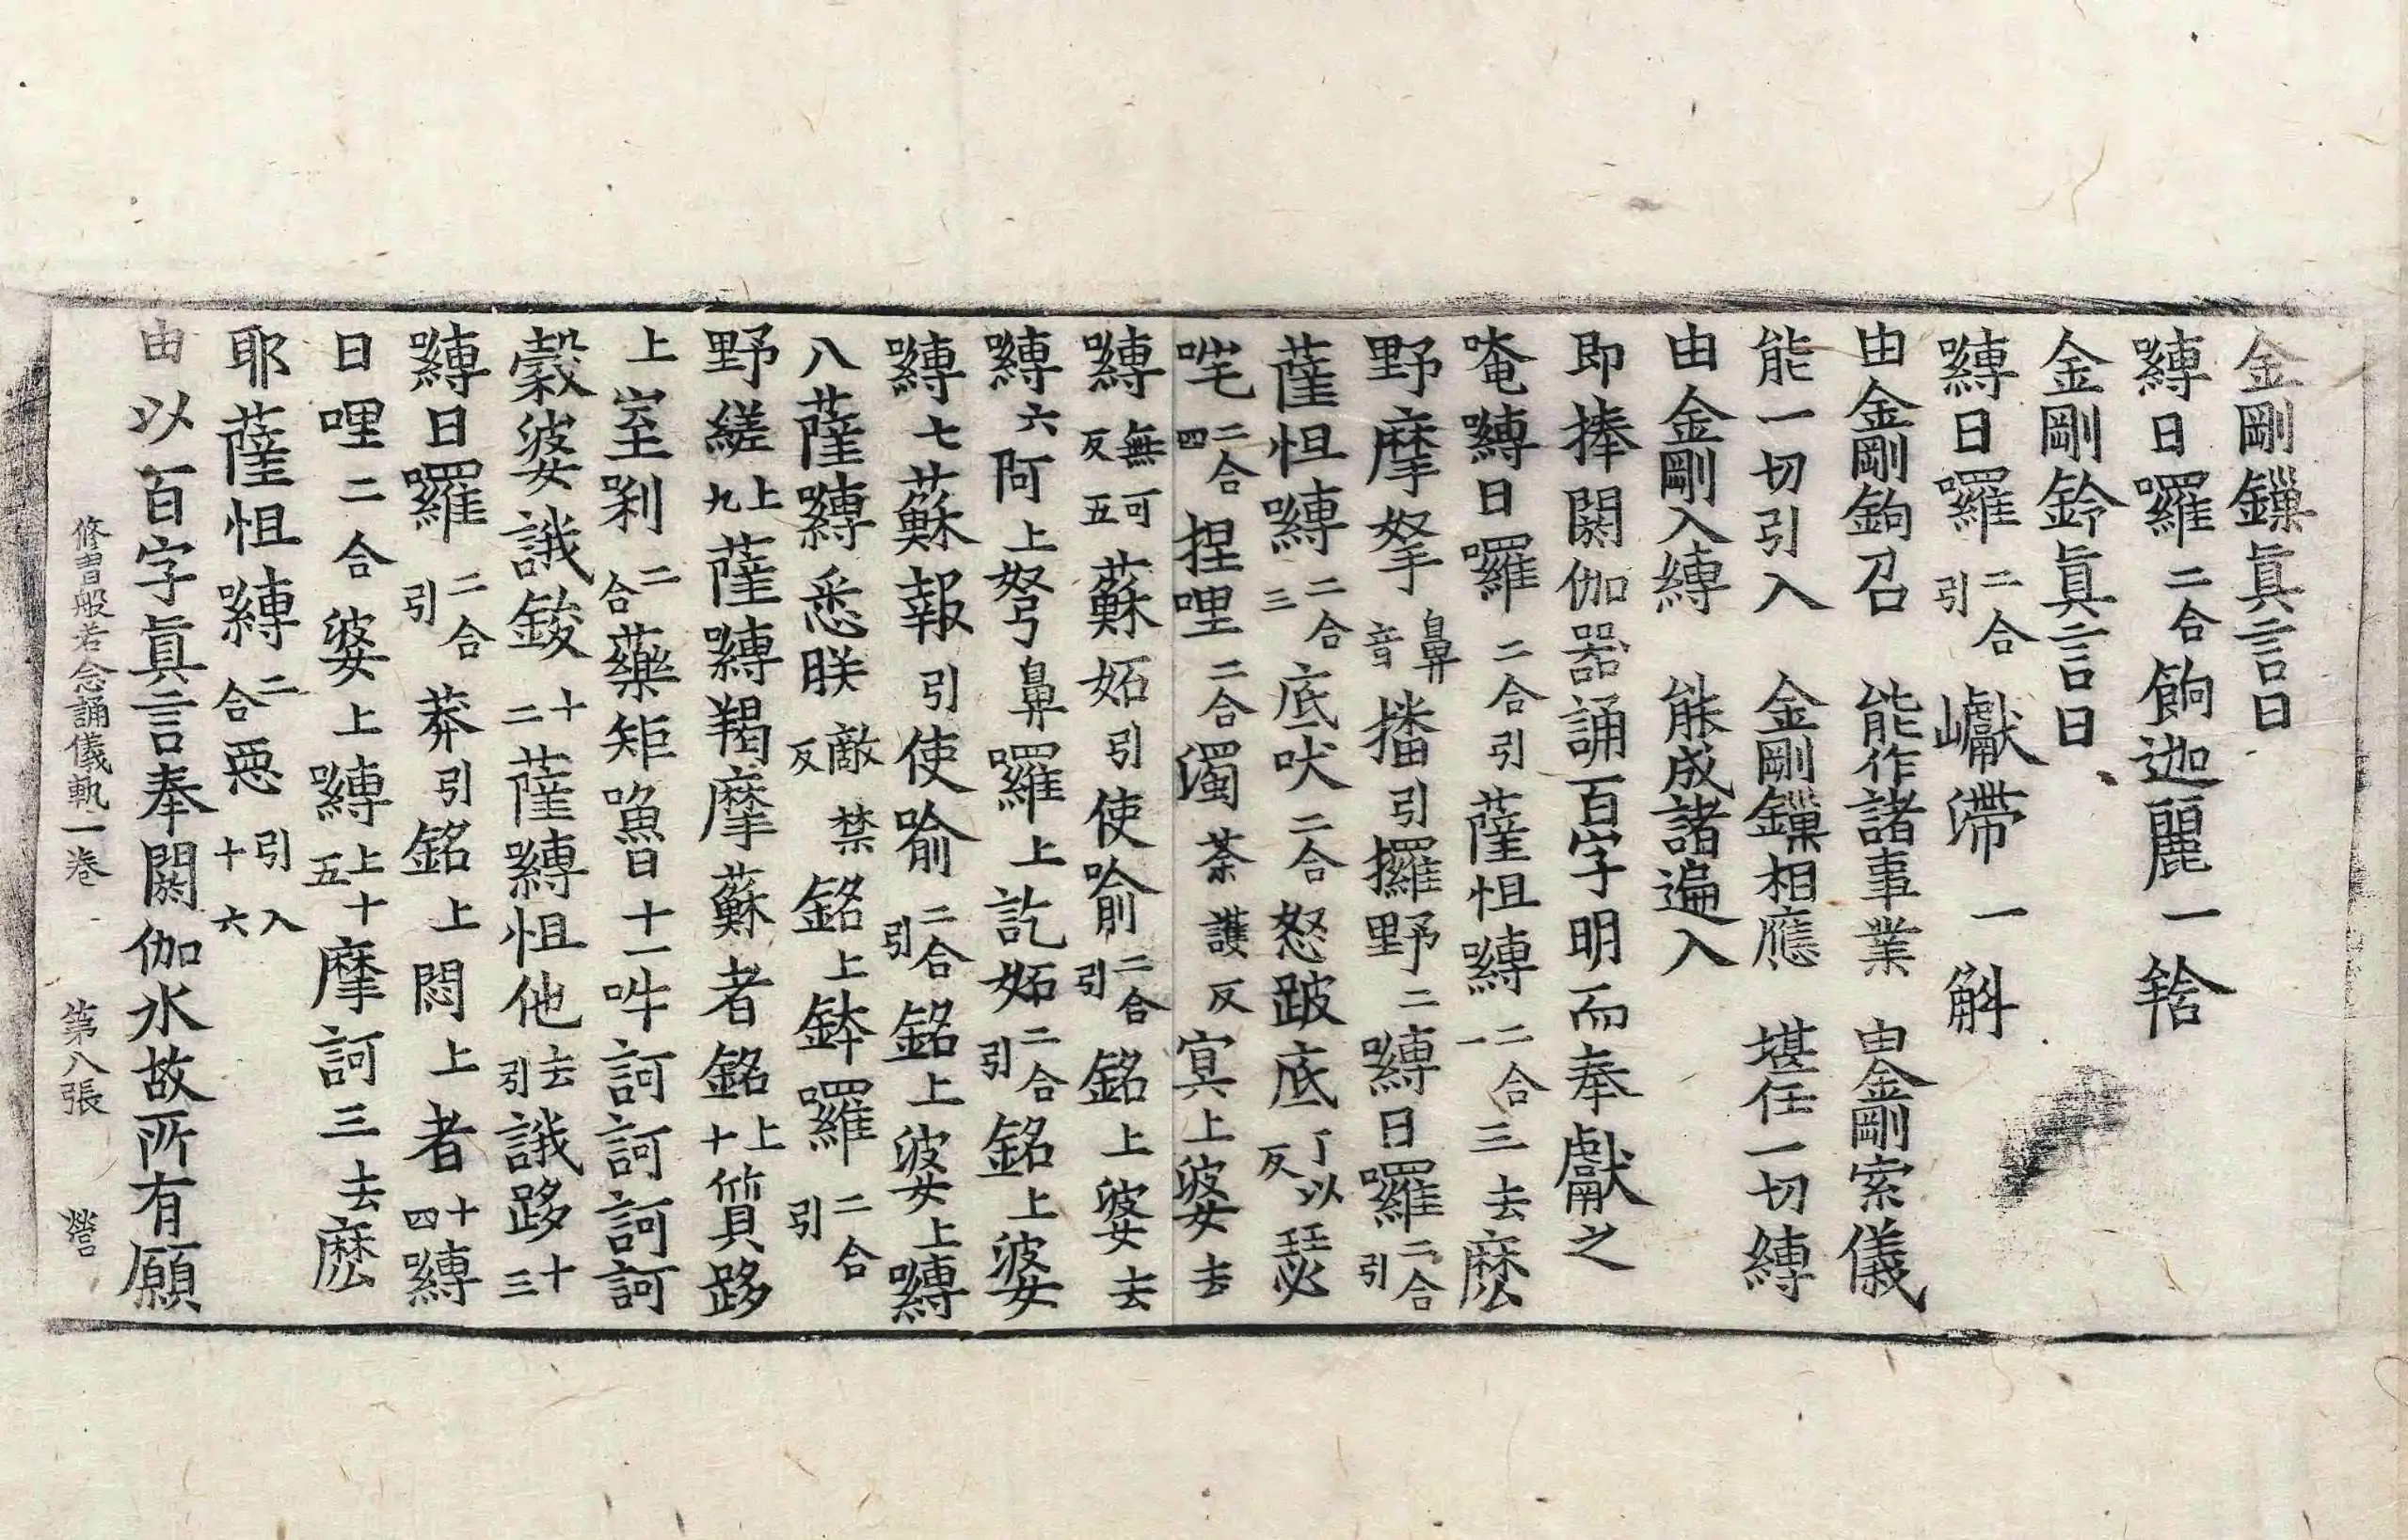 金剛鏁眞言曰
嚩日囉二合餉迦麗一鋡
金剛鈴眞言曰
嚩日囉二合引巘滯一斛
由金剛鉤召　能作諸事業　由金剛索儀
能一切引入　金剛鏁相應　堪任一切縛
由金剛入縛　能成諸遍入
即捧閼伽器誦百字明而奉獻之
唵嚩日囉二合引薩怛嚩二合一三去麽
野摩拏鼻音播引攞野二嚩日囉二合引
薩怛嚩二合三底吠二合怒跛底丁以反瑟
吒二合四捏哩二合濁荼護反寘上婆去
嚩無可反五蘇妬引使喻二合引銘上婆去
嚩六阿上努鼻囉上訖妬二合引銘上婆
嚩七蘇報引使喻二合引銘上婆上嚩
八薩嚩悉朕敵禁反銘上鉢囉二合引
野縒上九薩嚩羯摩蘇者銘上十質跢
上室剎二合藥矩嚕十一吽訶訶訶訶
縠婆誐鋑十二薩嚩怛他去引誐跢十三
嚩日囉二合引莽引銘上悶上者十四嚩
日哩二合婆上嚩上十五摩訶三去麽
耶薩怛嚩二合惡引入十六
由以百字眞言奉閼伽水故所有願
修習般若念誦儀軌一卷　第八張　營